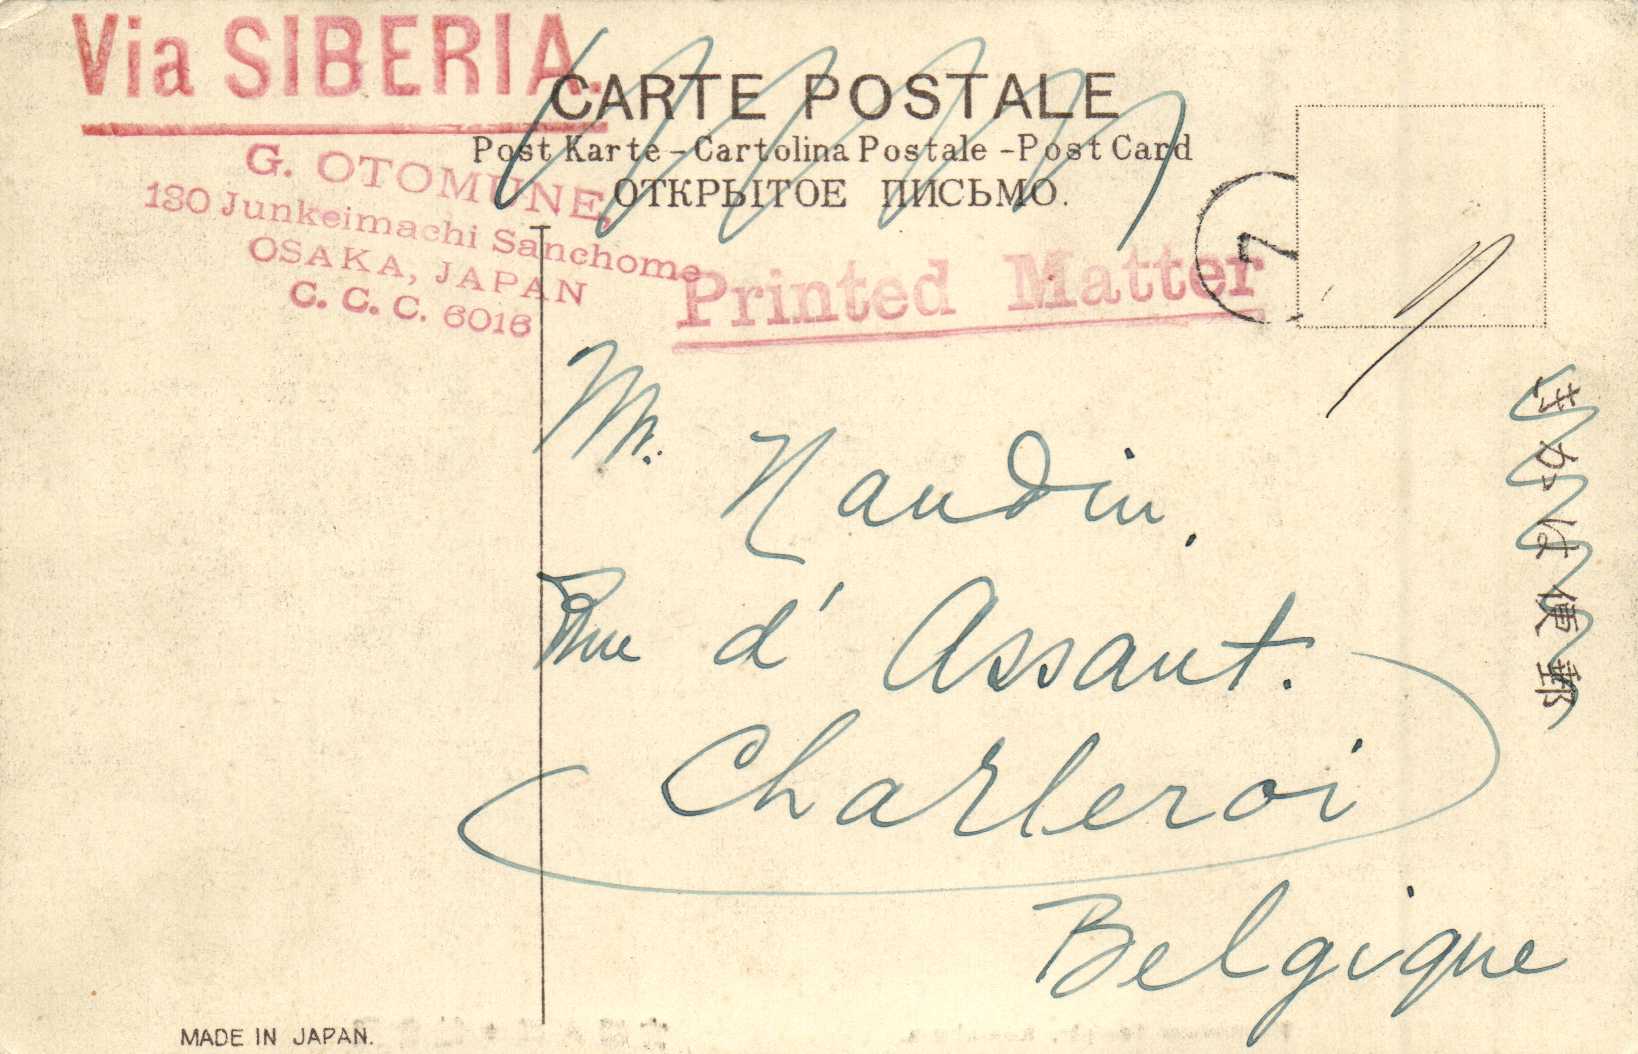 Via SIBERIA.
CARTE POSTALE
Post Karte – Cartolina Postale – Post Card
ОТКРЫТОЕ ПИСЬМО.
G. OTOMUNE,
130 Junkeimachi Sanchome
OSAKA, JAPAN
C. C. C. 6016
Printed Matter
7
Mr. Naudin.
Rue d' Assaut.
Charleroi
Belgique
郵便はがき
MADE IN JAPAN.